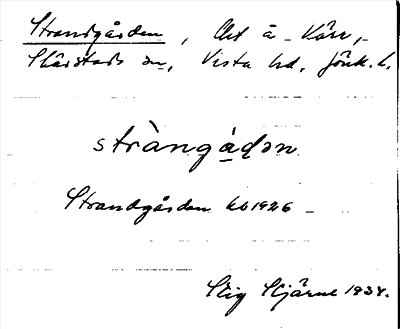 Strandgården, Avs å Kärr,
Skärstads sn, Vista hd, Jönk. l.
stràngá̱dən
Strandgården kb 1926
Stig Hjärne 1934.